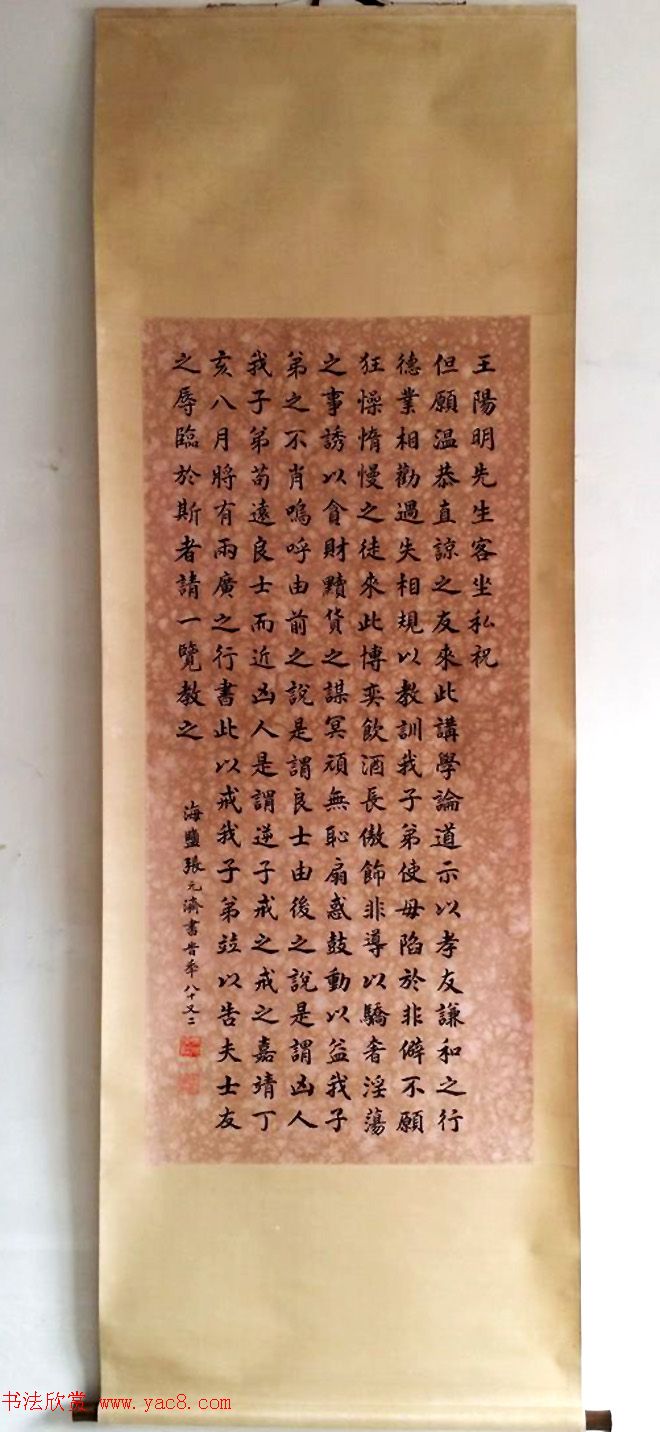 王陽明先生客坐私祝
但願溫恭直諒之友來此講學論道示以孝友謙和之行
德業相勸過失相規以教訓我子弟使毋陷於非僻不願
狂懆惰慢之徒來此博奕飲酒長傲飾非導以驕奢淫蕩
之事誘以貪財黷貨之謀冥頑無恥扇惑鼓動以益我子
弟之不肖嗚呼由前之說是謂良士由後之說是謂凶人
我子弟苟遠良士而近凶人是謂逆子戒之戒之嘉靖丁
亥八月將有兩廣之行書此以戒我子弟竝以告夫士友
之辱臨於斯者請一覽教之
海鹽張元濟書昔年八十又二
书法欣赏 www.yac8.com